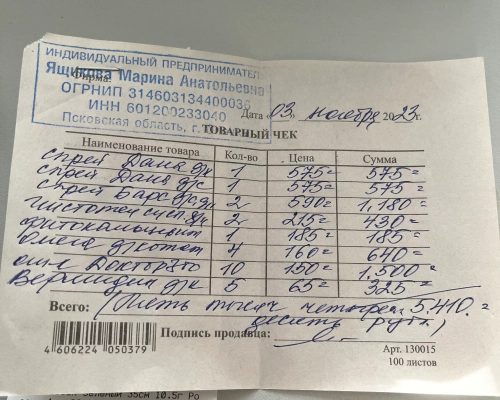 ИНДИВИДУАЛЬНЫЙ ПРЕДПРИНИМАТЕЛ
Ящикова Марина Анатольевна
Фирма:
ОГРНИП 314603134400036
ИНН 601200233040
Псковская область, г.
Дата «03 ноября 2023г.
ТОВАРНЫЙ ЧЕК
Наименование товара Кол-во Цена Сумма
спрей Дана д/к 1 575= 575=
спрей Дана д/с 1 575= 575=
спрей Барс 2 590= 1,180=
сусп. 2 215= 430=
фитокальцевит 1 185= 185=
4 160= 640=
10 150= 1,500=
5 65= 325=
Всего: (Пять тысяч четыреста 5.410.=
десять руб.)
Подпись продавца:
4 606224 050379
Арт. 130015
100 листов
зеленый 35см 10.5г Ро